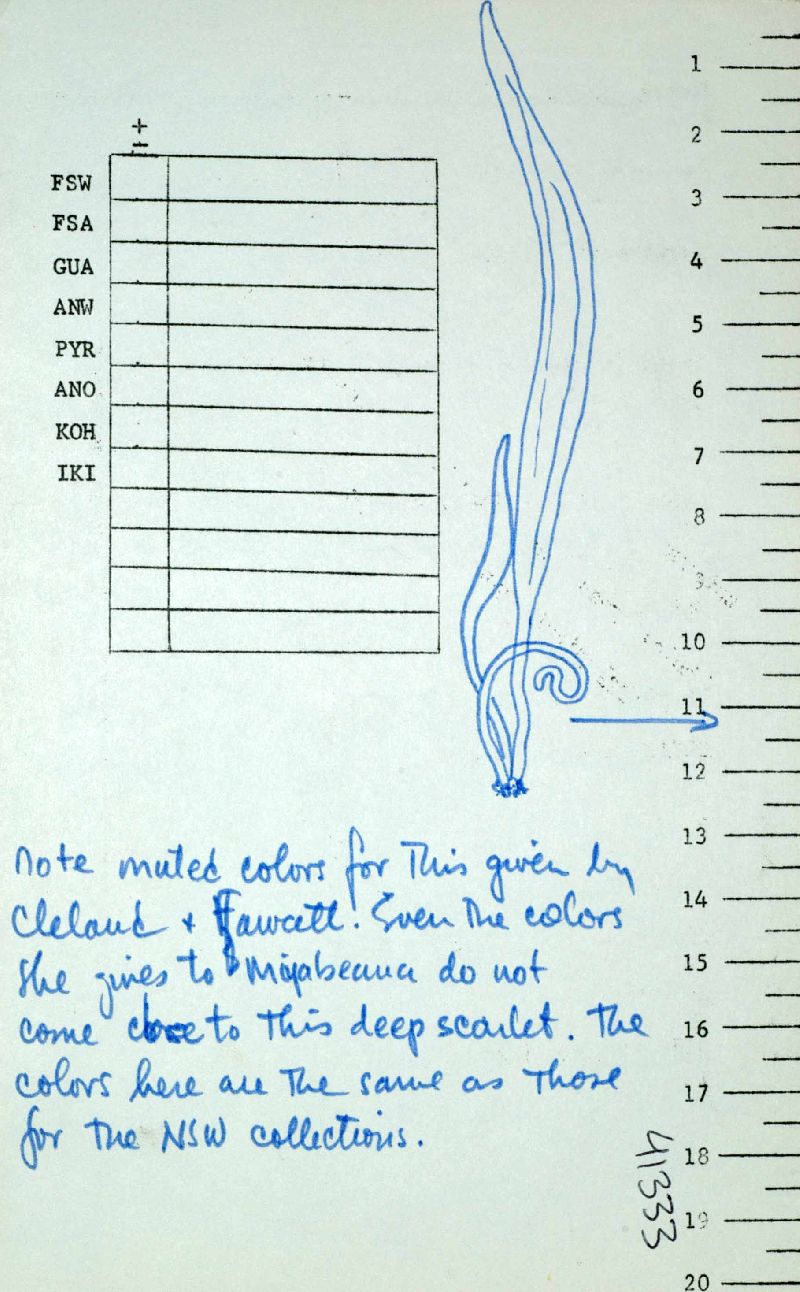 +
-
FSW
FSA
GUA
ANW
PYR
ANO
KOH
IKI
1
2
3
4
5
6
7
8
9
10
11
12
13
14
15
16
17
18
19
20
note muted colors for this given by
Cleland + Fawcett. Even the colors
she gives to Miyabeana do not
come close to this deep scarlet. The
colors here are the same as those
for the NSW collections.
41333